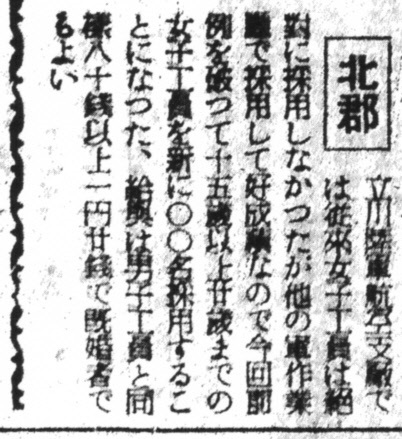 北郡
立川陸軍航空支廠で
は従來女子工員は絶
對に採用しなかつたが他の軍作業
廳で採用して好成績なので今回前
例を破つて十五歳以上廿歳までの
女子工員を新に〇〇名採用するこ
とになつた、給與は男子工員と同
樣八十銭以上一円廿銭で既婚者で
もよい